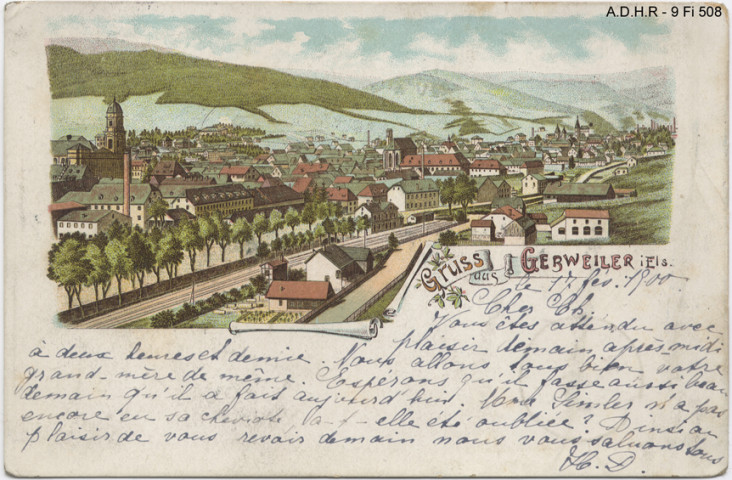 A.D.H.R - 9 Fi 508
Gruss aus GEBWEILER i/Els.
le 17. fev. 1900
Cher Ch.
Vous êtes attendu avec
plaisir demain après-midi
à deux heures et demie. Nous allons tous bien votre
grand-mère de même. Espérons qu'il fasse aussi beau
demain qu'il a fait aujourd'hui. Mme n'a pas
encore eu sa a-t-elle été oubliée?
plaisir de vous revoir demain nous vous saluons tous
H. D.